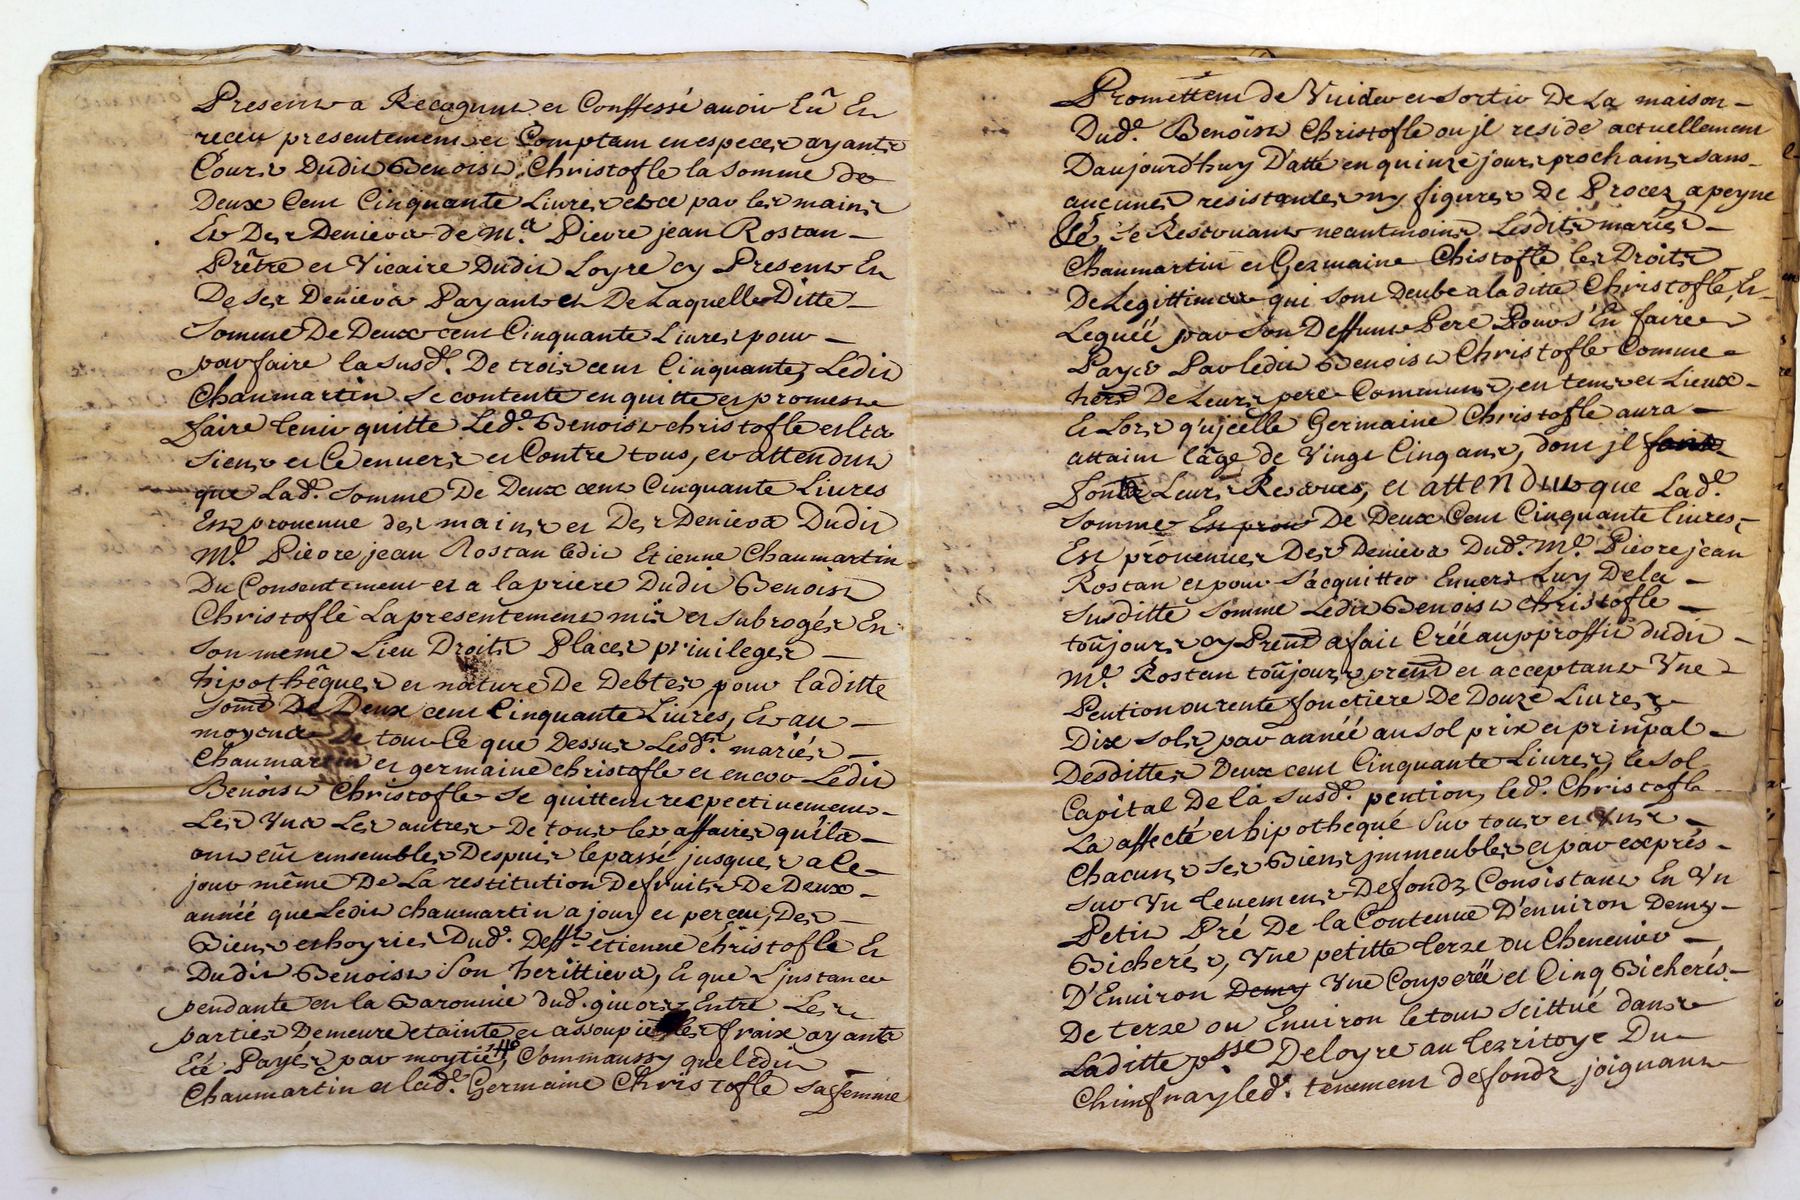 Present a Recognu et Conffessé avoir Eû En
receu presentement et Comptam en especes ayants
Cours Dudit Benoist Christofle la somme de
Deux Cent Cinquante Livres et ce par les mains
Et Des Deniers de Me. Pierre jean Rostan –
Prêtre et Vicaire Dudit Loyre cy Present En
De Ses Deniers Payant et De Laquelle Ditte –
Somme De Deux cent Cinquante Livres pour –
parfaire la susde. De trois cent Cinquante, Ledit
Chaumartin se contente en quitte et promest
faire tenir quitte Led. Benoist christofle et les
siens et Ce envers et Contre tous, et attendu
que Lad. somme De Deux cent Cinquante Livres
Est provenue des mains et Des Deniers Dudit
Me. Pierre jean Rostan ledit Etienne Chaumartin
Du Consentement et a la priere Dudit Benoist
Christofle La presentement mis et subrogés En
son meme Lieu Droits Places privileges –
hipothêques et nature De Debtes pour laditte
Some De Deux cent Cinquante Livres, Et au –
moyend De tout Ce que Dessus Lesds. mariés –
Chaumartin et germaine christofle et encor Ledit
Benoist Christofle se quittent respectivement –
Les Uns Les autres De tous les affaires quila –
ont eûe emsembles Despuis le passé jusques a le
jour même De La restitution De fruits De Deux –
année que Ledit chaumartin a jouy et perceu, Des –
Biens et hoyries Dud. Defft. etienne christofle Et
Dudit Benoist Son herittiers, Et que L'jnstance
pendante en la Baronnie dud. givors Entre Les
parties Demeure etainte et assoupie les fraix ayants
Eté Payés par moytié, Commaussy que ledit
Chaumartin et lade. Germaine Christofle sa femme
Promettent de Vuider et Sortir De La maison –
Dude. Benoist Christofle ou jl reside actuellement
D'aujourd'huy Datte en quinze jours prochains sans –
aucunes resistances ny figures De Procez, a peyne
se Reservants neantmoins Lesdits mariés –
Chaumartin et Germaine Chistofle les Droits
De Legittimes qui sont Deube a laditte Christofle, Et
Leguée par son Deffunt Pere Pour s'En faire
Payer Par ledit Benoist Christofle Comme –
hers De Leurs pere Communs, en tems et Lieux –
Et Lors qu'jcelle Germaine Christofle aura –
attaint l'âge de Vingt Cinq ans, dont jl
font Leurs Reserves, et attendu que Lade.
somme Est prov De Deux Cent Cinquante livres –
Est provenues Des Deniers Dud. Me. Pierre jean
Rostan et pour S'acquitter Envers Luy De la –
susditte somme Ledit Benoist christofle –
toûjours cy Prent a fait Créé au proffit dudit –
Me. Rostan toûjours prent et acceptant Une –
Pention ou rente fonctiere De Douze Livres
Dix sols par année au sol prix et prinpal –
Desdittes Deux cent Cinquante Livres, le sol
Capital De la susde. pention, led. Christofle
La affecté et hipothequé Sur tous et Uns –
Chacuns ses Biens jmmeubles et par exprés –
sur Un tenement De fondz Consistant En Un
Petit Pré De la Contenue D'environ Demy –
Bicherés, Une petitte terre ou Chenevier –
D'Environ Demy Une Couperéé et Cinq Bicherés –
De terre ou Environ le tout scittué dans
Laditte psse. De loyre au territoye Du –
Chimfray led. tenement de fondz joignant